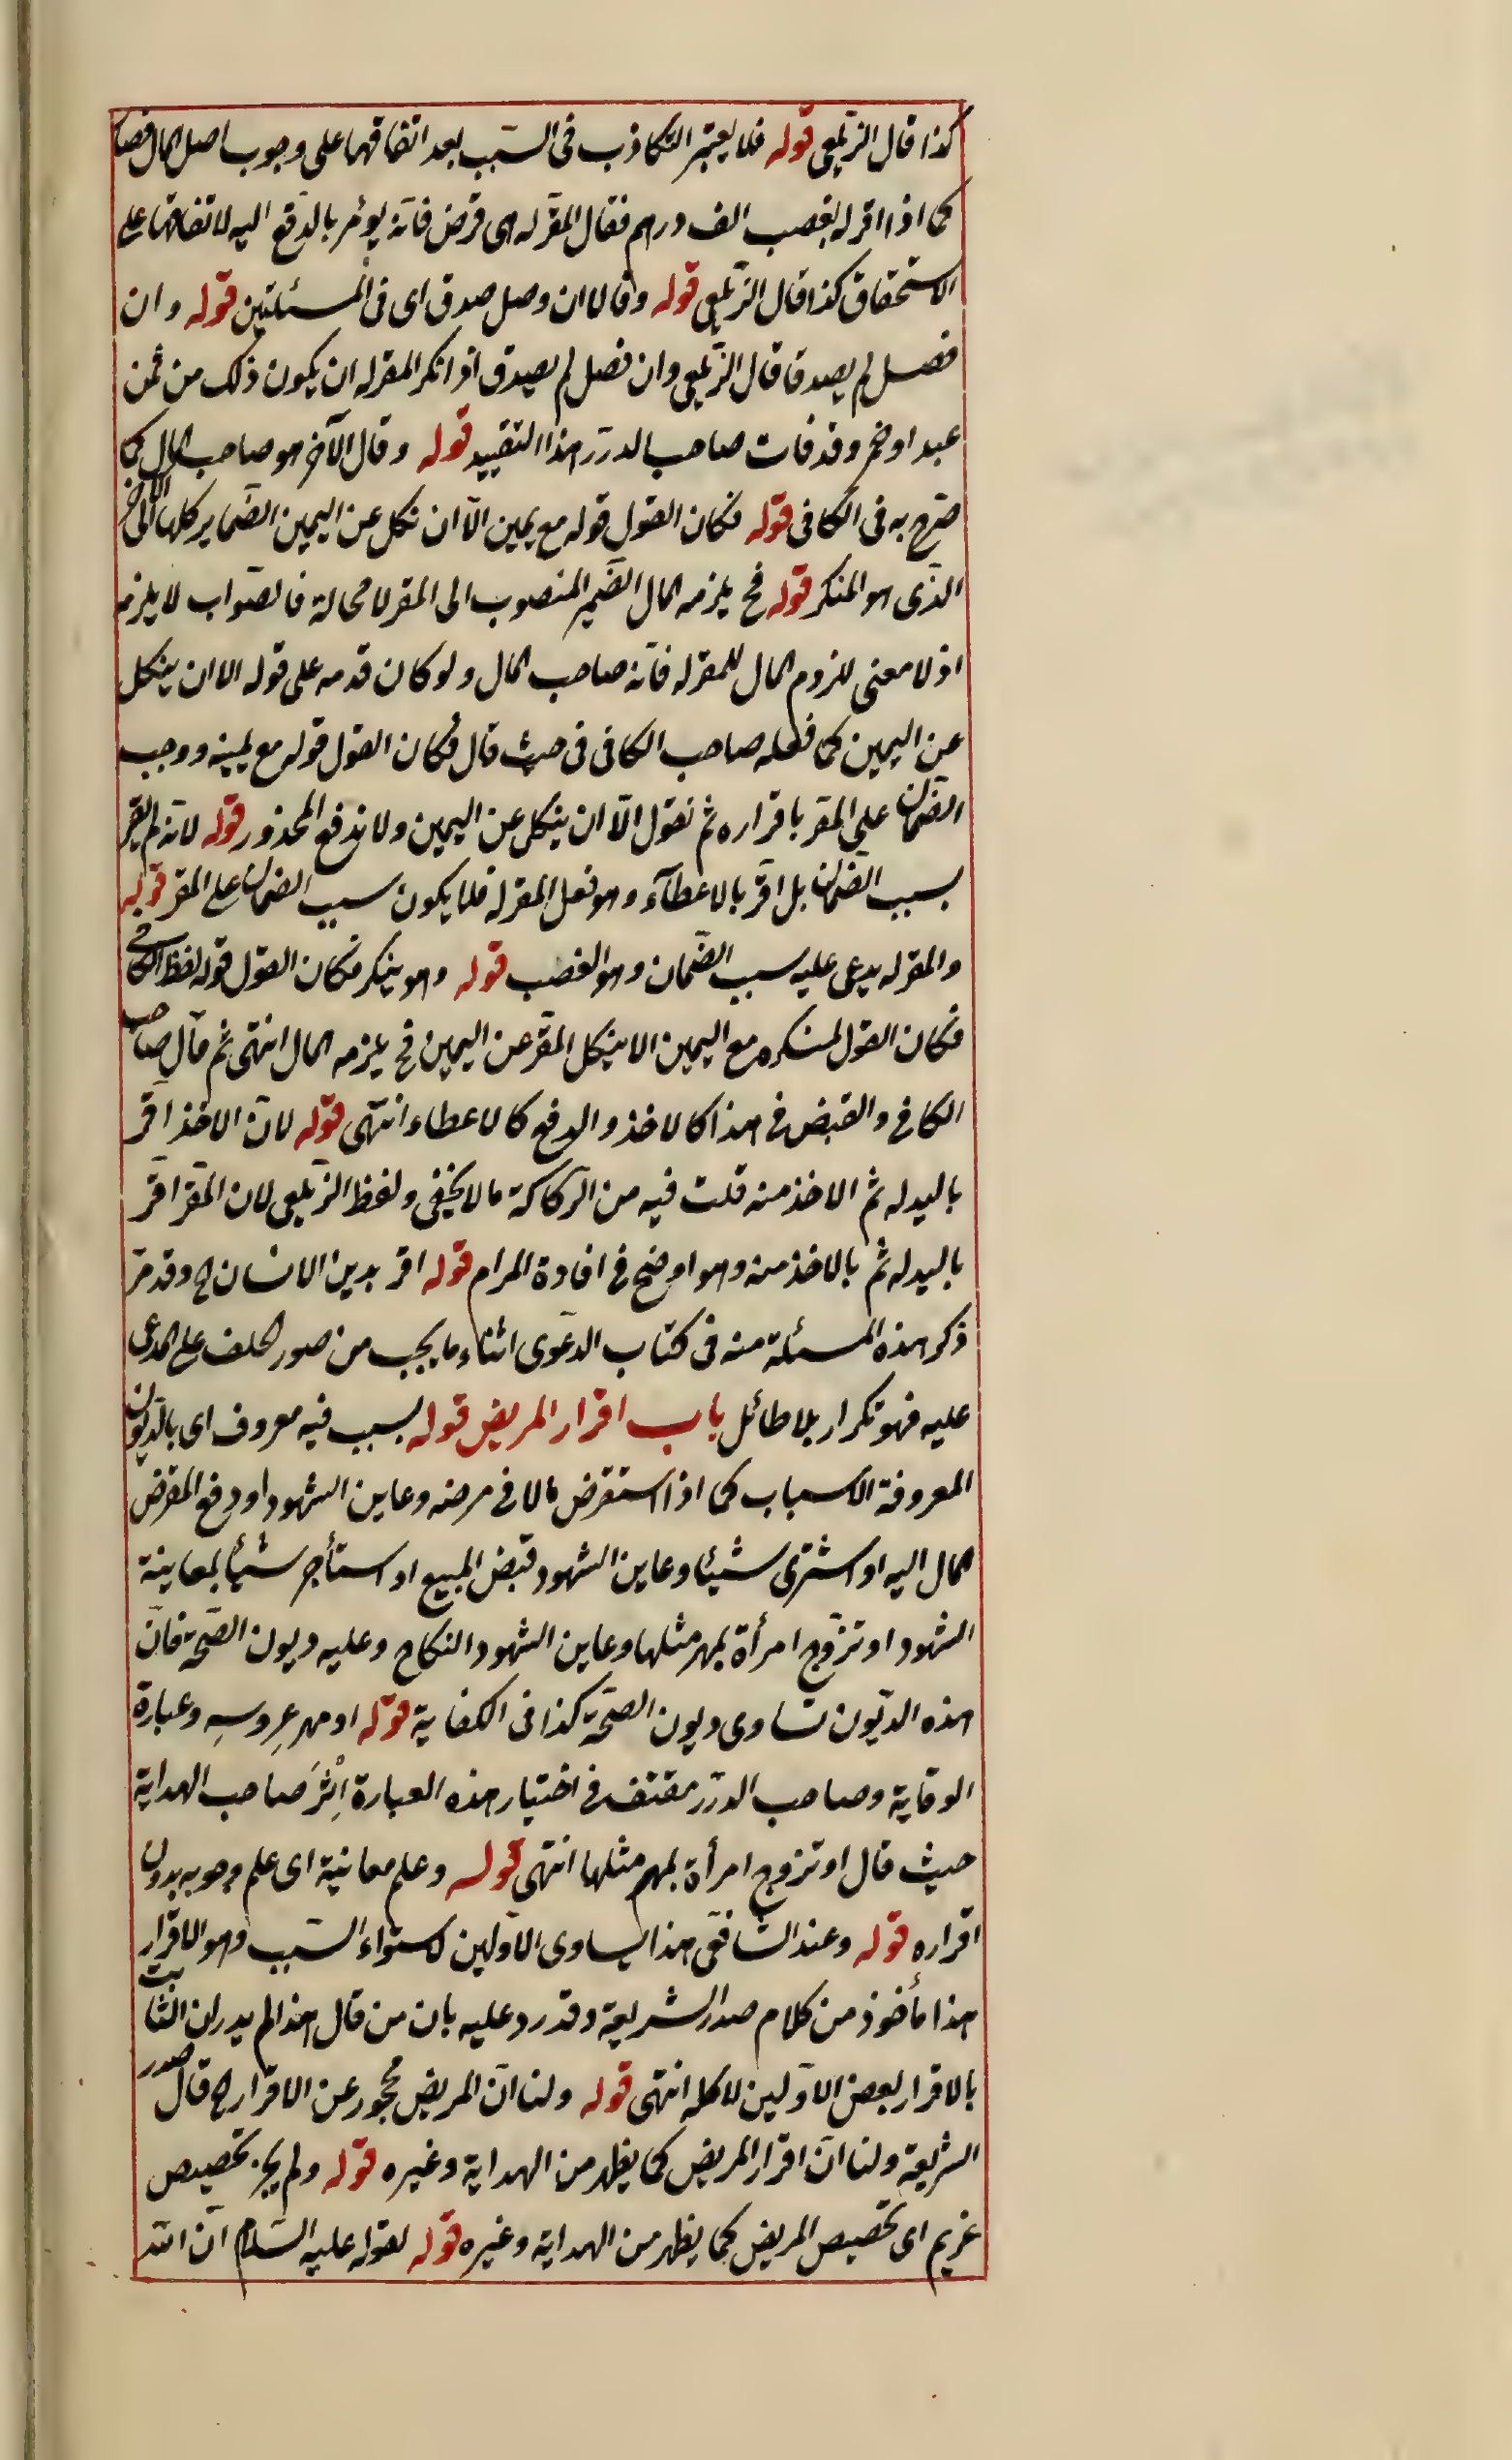 كذا قال الزيلعي قوله فلا يعتبر التكاذب في السبب بعد اتفاقهما على وجوب اصل المال فصار
كما اذا اقر له بغصب الف درهم فقال المقر له هي قرض فانه يؤمر بالدفع اليه لاتفاقهما على
الاستحقاق كذا قال الزيلعي قوله وقالا ان وصل صدق اى في المسئلتين قوله وان
فصل لم يصدقا قال الزيلعي وان فصل لم يصدق اذا انكر المقر له ان يكون ذلك من ثمن
عبد او خمر وقد فات صاحب الدرر هذا التقييد قوله وقال الآخر هو صاحب المال كما
صرح به في الكافي قوله فكان القول قوله مع يمين الا ان نكل عن اليمين الضماير كلها الى الآخر
الذى هو المنكر قوله فح يلزمه المال الضمير المنصوب الى المقر لا محالة فالصواب لا يلزمه
اذ لا معنى للزوم المال للمقر له فانه صاحب المال ولو كان قدمه على قوله الا ان ينكل
عن اليمين كما فعله صاحب الكافي في حيث قال فكان القول قوله مع يمينه ووجب
الضمان على المقر باقراره ثم نقول الا ان ينكل عن اليمين ولاندفع المحذور قوله لانه لم يقر
بسبب الضمان بل اقر بالاعطآء وهو فعل المقر له فلا يكون سبب الضمان على المقر قوله
والمقر له يدعى عليه سبب الضمان وهو الغصب قوله وهو ينكر فكان القول قوله لفظ الكافي
فكان القول لمنكره مع اليمين الا ينكل المقر عن اليمين فح يلزمه المال انتهى ثم قال صاحب
الكافي والقبض في هذا كالاخذ والدفع كالاعطاء انتهى قوله لان الاخذ اقر
باليد له ثم الاخذ منه قلت فيه من الركاكة ما لا يخفى ولفظ الزيلعي لان المقر اقر
باليد له ثم بالاخذ منه وهو اوضح في افادة المرام قوله اقر بدين الانسان الخ وقد مر
ذكر هذه المسئلة منه في كتاب الدعوى اثناء ما يجب من صور الحلف على المدعى
عليه فهو تكرار بلا طائل باب اقرار المريض قوله بسبب فيه معروف اى بالديون
المعروفة الاسباب كما اذا استقرض مالا في مرضه وعاين الشهود او دفع المقرض
المال اليه او اشترى شيئا وعاين الشهود قبض المبيع او استأجر شيئا بمعاينة
الشهود او تزوج امرأة بمهر مثلها وعاين الشهود النكاح وعليه ديون الصحة فان
هذه الديون تساوى ديون الصحة كذا في الكفاية قوله او مهر عروسه وعبارة
الوقاية وصاحب الدرر مقتف في اختيار هذه العبارة اثر صاحب الهداية
حيث قال او تزوج امرأة بمهر مثلها انتهى قوله وعلم معاينة اى علم وجوبه بدون
اقراره قوله وعند الشافعي هذا يساوى الاولين لاستواء السبب وهو الاقرار
هذا مأخوذ من كلام صدر الشريعة وقد رد عليه بان من قال هذا لم يدر ان الثابت
بالاقرار بعض الاولين لا كله انتهى قوله ولنا ان المريض محجور عن الاقرار الخ قال صدر
الشريعة ولنا ان اقرار المريض كما يظهر من الهداية وغيره قوله ولم يجز تخصيص
غريم اى تخصيص المريض كما يظهر من الهداية وغيره قوله لقوله عليه السلام ان الله